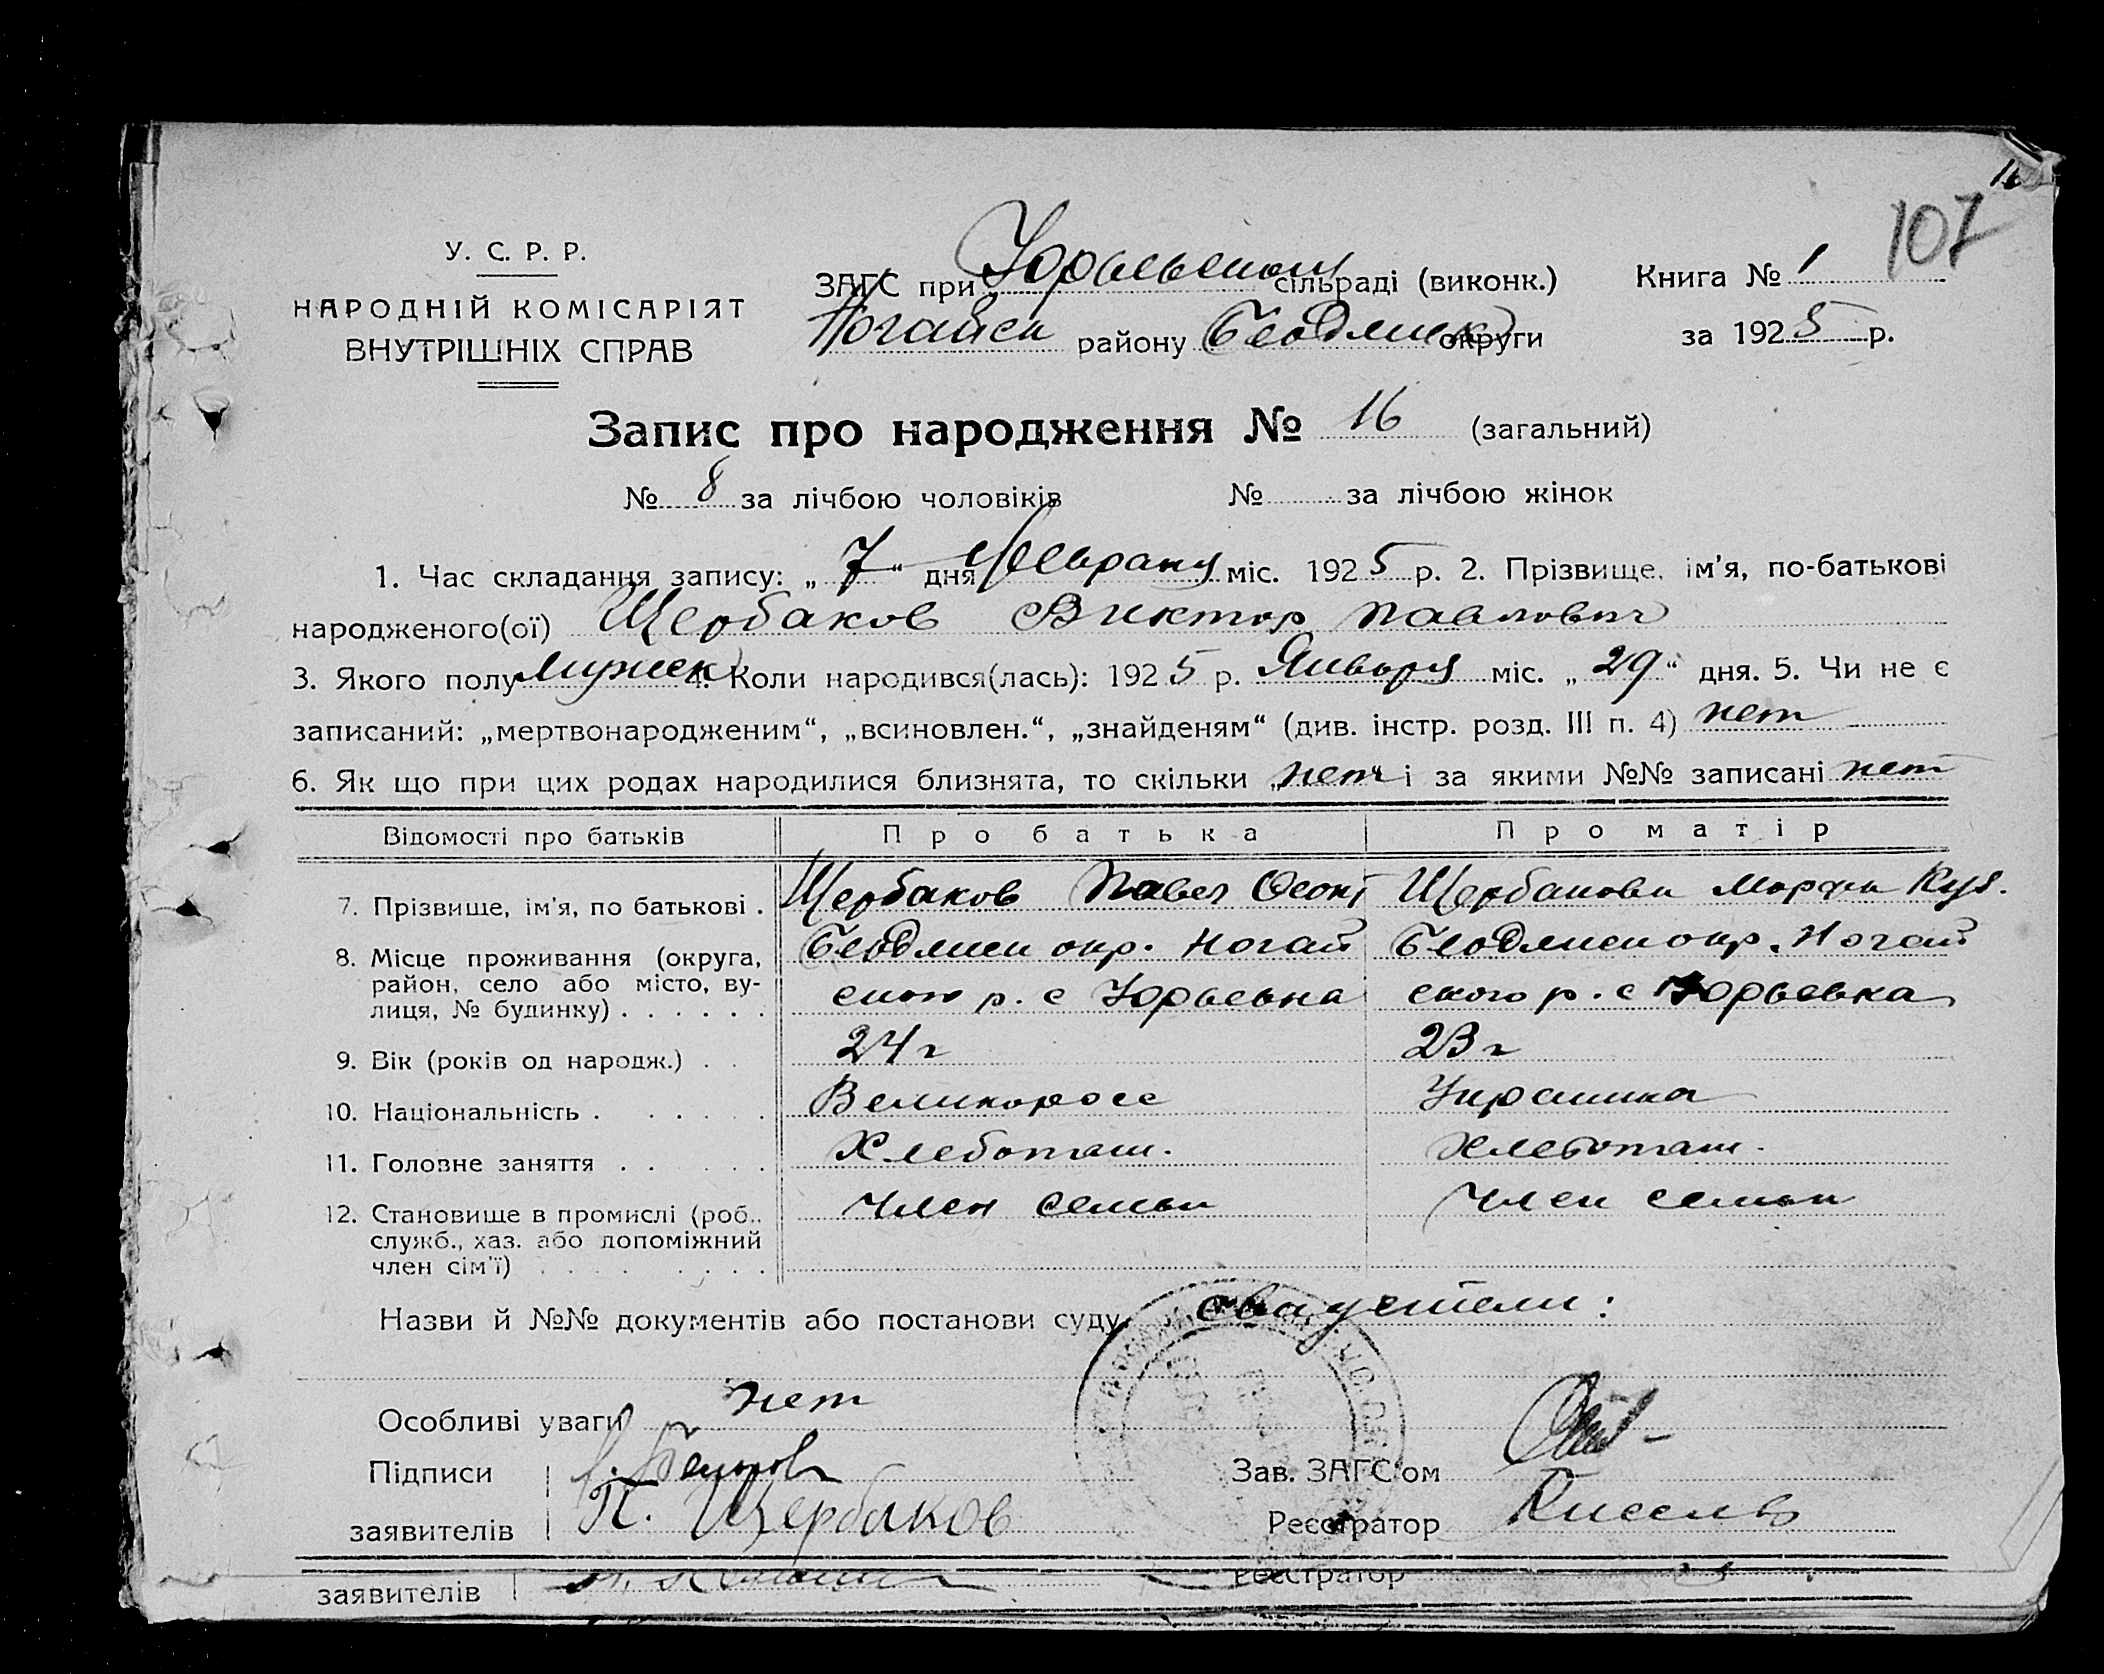 107
У. С. Р. Р.
НАРОДНІЙ КОМІСАРІЯТ
ВНУТРІШНІХ СПРАВ
ЗАГС при Юрьевском сільраді (виконк.)
Ногайск району округи
Книга № 1
за 1925 р.
Запис про народження № 16 (загальний)
№ 8 за лічбою чоловіків № за лічбою жінок
1. Час складання запису: „7“ дня Февраля міс. 1925 р. 2. Прізвище, ім'я, по-батькові
народженого(ої) Щербаков Виктор Павлович
3. Якого полу мужск 4. Коли народився(лась): 1925 р. Января міс. „29“ дня. 5. Чи не є
записаний: „мертвонародженим“, „всиновлен.“, „знайденям“ (див. інстр. розд. III п. 4) нет
6. Як що при цих родах народилися близнята, то скільки „нет“ і за якими №№ записані нет
Відомості про батьків Про батька Про матір
7. Прізвище, ім'я, по батькові . Щербаков Павел Щербакова Марфа Куз.
8. Місце проживання (округа, окр. Ногай окр. Ногай
район, село або місто, ву-
лиця, № будинку) . . . . . . ского р. с Юрьевка ского р. с Юрьевка
9. Вік (років од народж.) . . 24 г 23 г
10. Національність . . . . . . Великоросс Украинка
11. Головне заняття . . . . . Хлебопаш. Хлебопаш.
12. Становище в промислі (роб., член семьи член семьи
служб., хаз. або допоміжний
член сім'ї) . . . . . . . .
Назви й №№ документів або постанови суду свидетели:
Особливі уваги нет
Підписи
Зав. ЗАГС'ом
заявителів П. Щербаков
Реєстратор Кисель
заявителів
Реєстратор